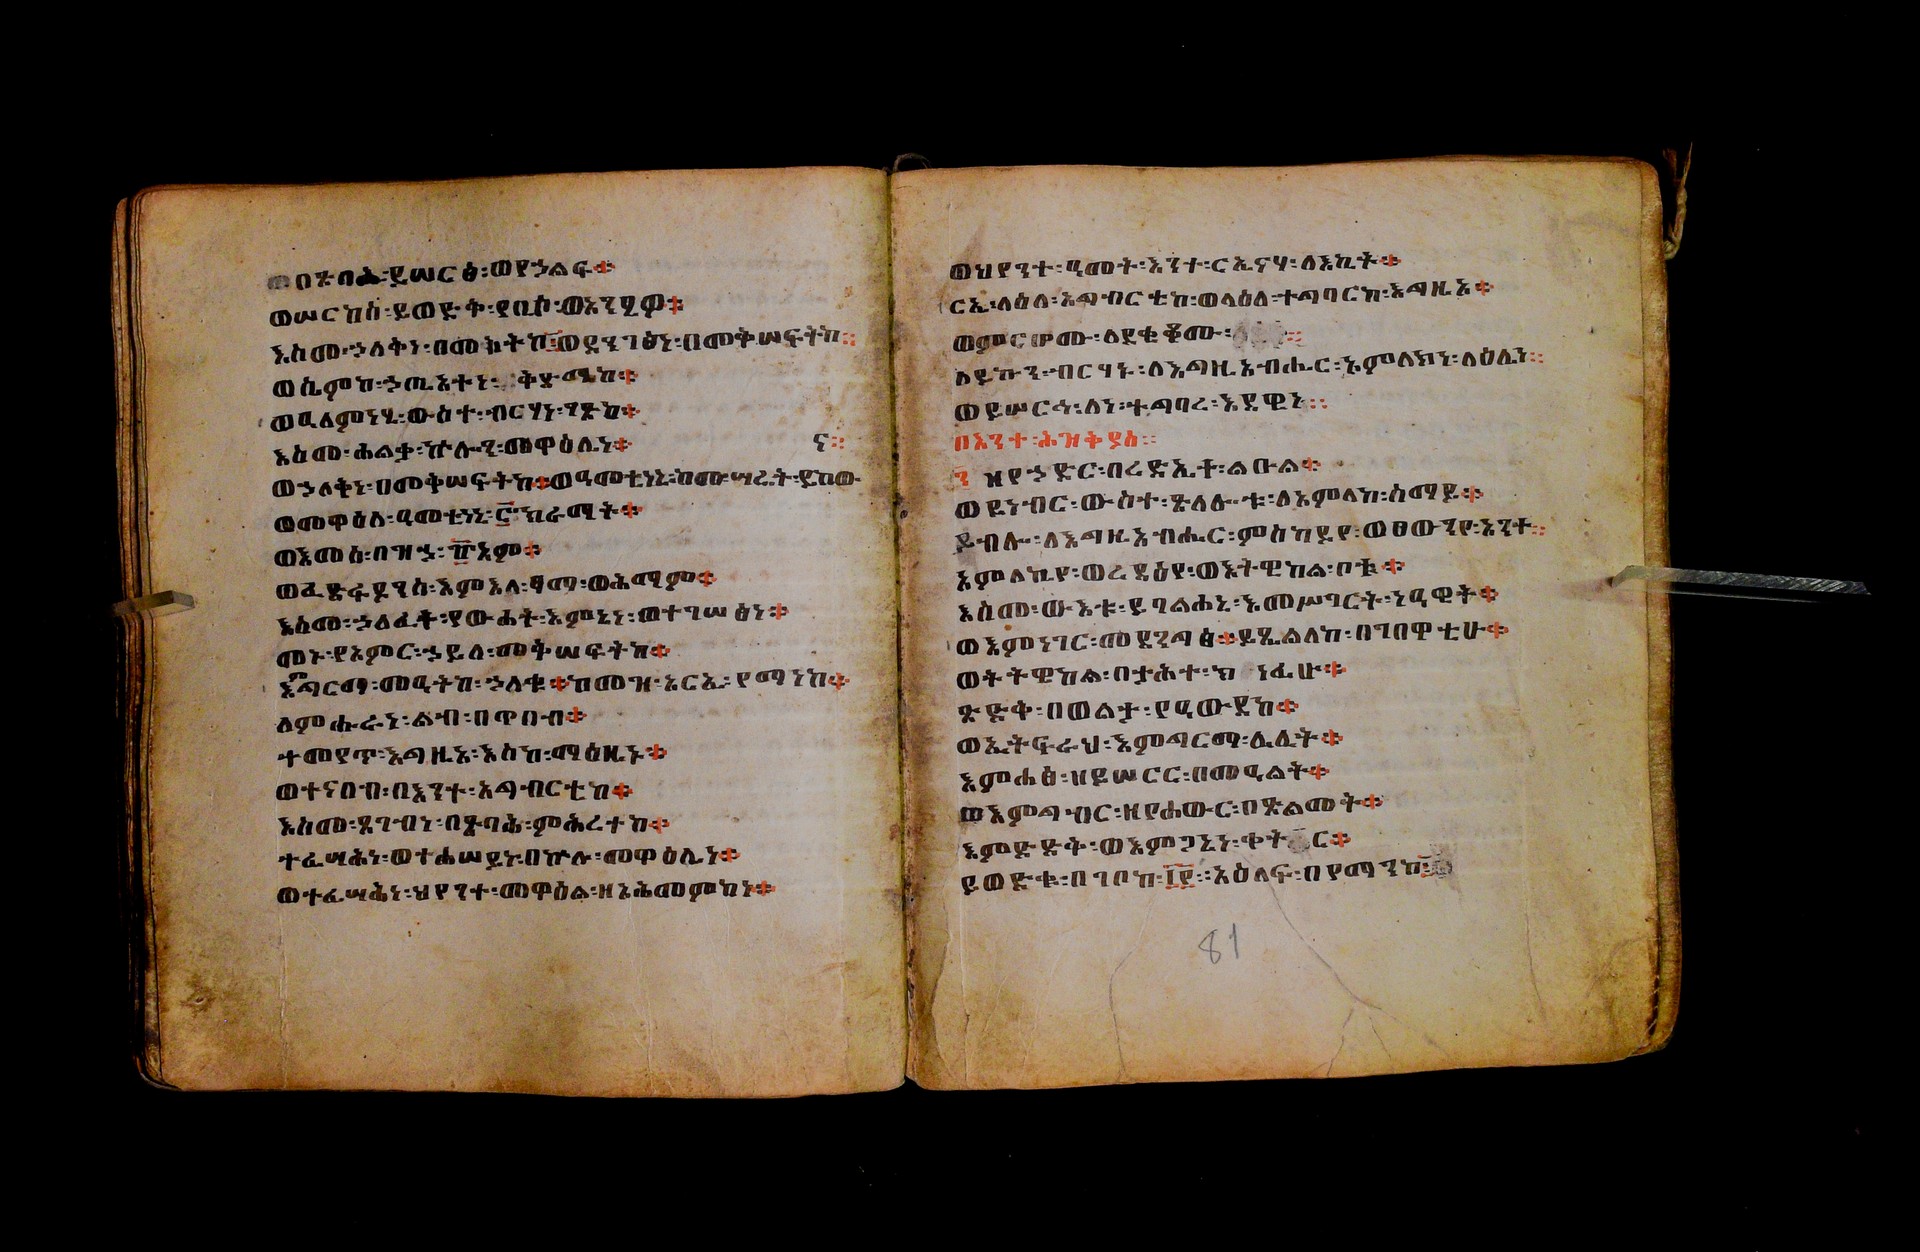 ወበጽባሕ፡ይሠርፅ፡ወየኃልፍ፨
ወሠርከሰ፡ይወድቅ፡የቢስ፡ወእንዚወ፨
እስመ፡ኃለቅነ፡በመዐትከ፡ወደንገፅነ፡በመቅሠፍትከ፨
ወሤምከ፡ኃጢአተነ፡ቅድሜከ፨
ወዓለምነሂ፡ውስተ፡ብርሃነ፡ገጽከ፨
እስመ፡ሐልቀ፡ኵሉን፡መዋዕሊነ፨
ወኃለቅነ፡በመቅሠፍትከ፨ወዓመቲነኒ፡ከመ፡ሣሬት፡ይከውና፨
መዋዕለ፡ዓመቲነኒ፡፸ክራማት፨
ወእመሰ፡በዝኃ፡፹እም፨
ወፈድፋዶንሰ፡እምእለ፡ፃማ፡ወሕማም፨
እስመ፡ኃለፈት፡የውሐት፡እምኔነ፡ወተገሠፅነ፨
መኑ፡የአምር፡ኃይለ፡መቅሠፍትከ፨
እምግርማ፡መዓትከ፡ኃለቁ፨ከመዝ፡አርኢ፡የማነከ፨
ለምሁራነ፡ልብ፡በጥበብ፨
ተመየጥ፡እግዚኦ፡እስከ፡ማዕዜኑ፨
ወተናበብ፡በእንተ፡አግብርቲከ፨
እስመ፡ጸገብነ፡በጽባሕ፡ምሕረተከ፨
ተፈሣሕነ፡ወተሐሠይነ፡በኵሉ፡መዋዕሊነ፨
ወተፈሣሕነ፡ህየንተ፡መዋዕል፡ዘአሕመምከነ፨
ወህየንተ፡ዓመት፡እንተ፡ርኢናሃ፡ለእኪት፨
ርኢ፡ላዕለ፡አግብርቲከ፡ወላዕለ፡ተግባርከ፡እግዚኦ፨
ወምርሆሙ፡ለደቂቆሙ፡
ለይኩን፡ብርሃኑ፡ለእግዚአብሔር፡አምላክነ፡ላዕሌነ፨
ወይሠርሕ፡ለነ፡ተግባረ፡እደዊነ፨
በእንተ፡ሕዝቅያስ፨
ዘየኃድር፡በረድኤተ፡ልዑል፨
ወይነብር፡ውስተ፡ጽላሎቱ፡ለአምላከ፡ሰማይ፨
ይብሎ፡ለእግዚአብሔር፡ምስካይየ፡ወፀወንየ፡አንተ፨
አምላኪየ፡ወረዳዕየ፡ወእትዌከል፡ቦቱ፨
እስመ፡ውእቱ፡ይባልሐኒ፡እመሥገርት፡ነዓዊት፨
ወእምነገር፡መደንግፅ፨ይጼልለከ፡በገበዋቲሁ፨
ወትትዌከል፡በታሕተ፡ክነፊሁ፨
ጽድቅ፡በወልታ፡የዓውደከ፨
ወኢትፍራህ፡እምግርማ፡ሌሊት፨
እምሐፅ፡ዘይሠርር፡በመዓልት፨
ወእምግብር፡ዘየሐውር፡በጽልመት፨
እምድድቅ፡ወእምጋኔነ፡ቀትር፨
ይወድቁ፡በገቦከ፡፲፻፡አዕላፍ፡በየማንከ፡
81